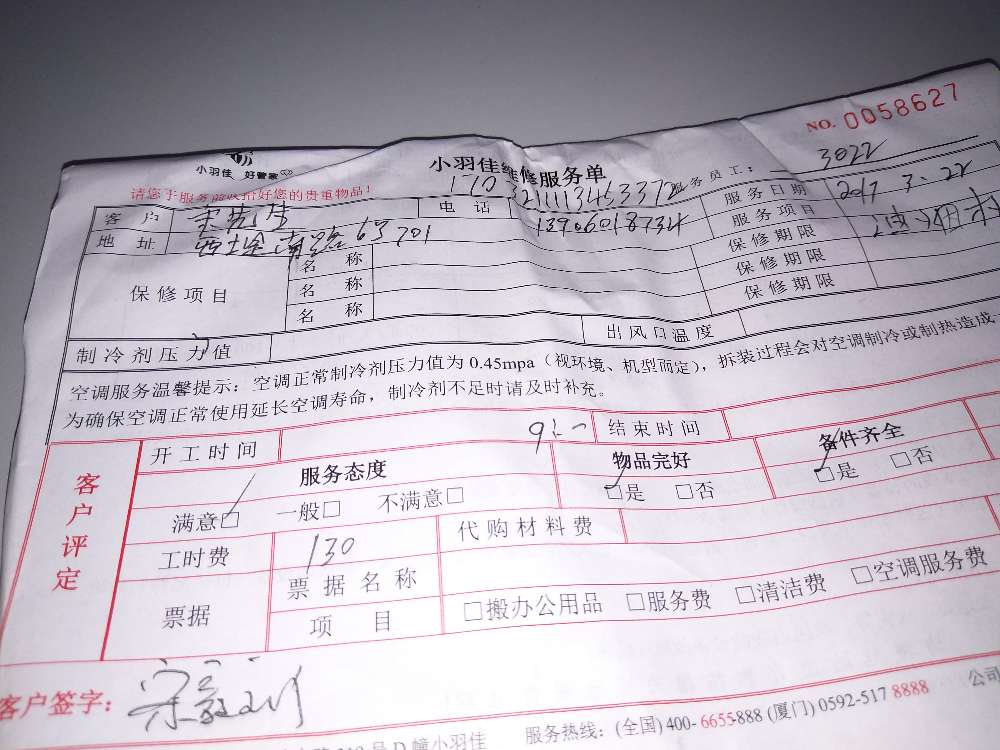 NO. 0058627
小羽佳 好管家
小羽佳维修服务单
服务员工: 3022
请您于服务前收拾好您的贵重物品!
客户 宋先生 电话 13906018734 服务日期 2017 3.22
地址 63 701 服务项目
保修项目 名称 保修期限
名称 保修期限
名称 保修期限
制冷剂压力值 出风口温度
空调服务温馨提示:空调正常制冷剂压力值为 0.45mpa(视环境、机型而定),拆装过程会对空调制冷或制热造成
为确保空调正常使用延长空调寿命,制冷剂不足时请及时补充。
客户评定
开工时间 结束时间
服务态度 物品完好 备件齐全
满意□ 一般□ 不满意□ □是 □否 □是 □否
工时费 130 代购材料费
票据 票据名称
项目 □搬办公用品 □服务费 □清洁费 □空调服务费
客户签字:
服务热线:(全国) 400-6655-888 (厦门) 0592-517 8888 公司
号 D 幢小羽佳